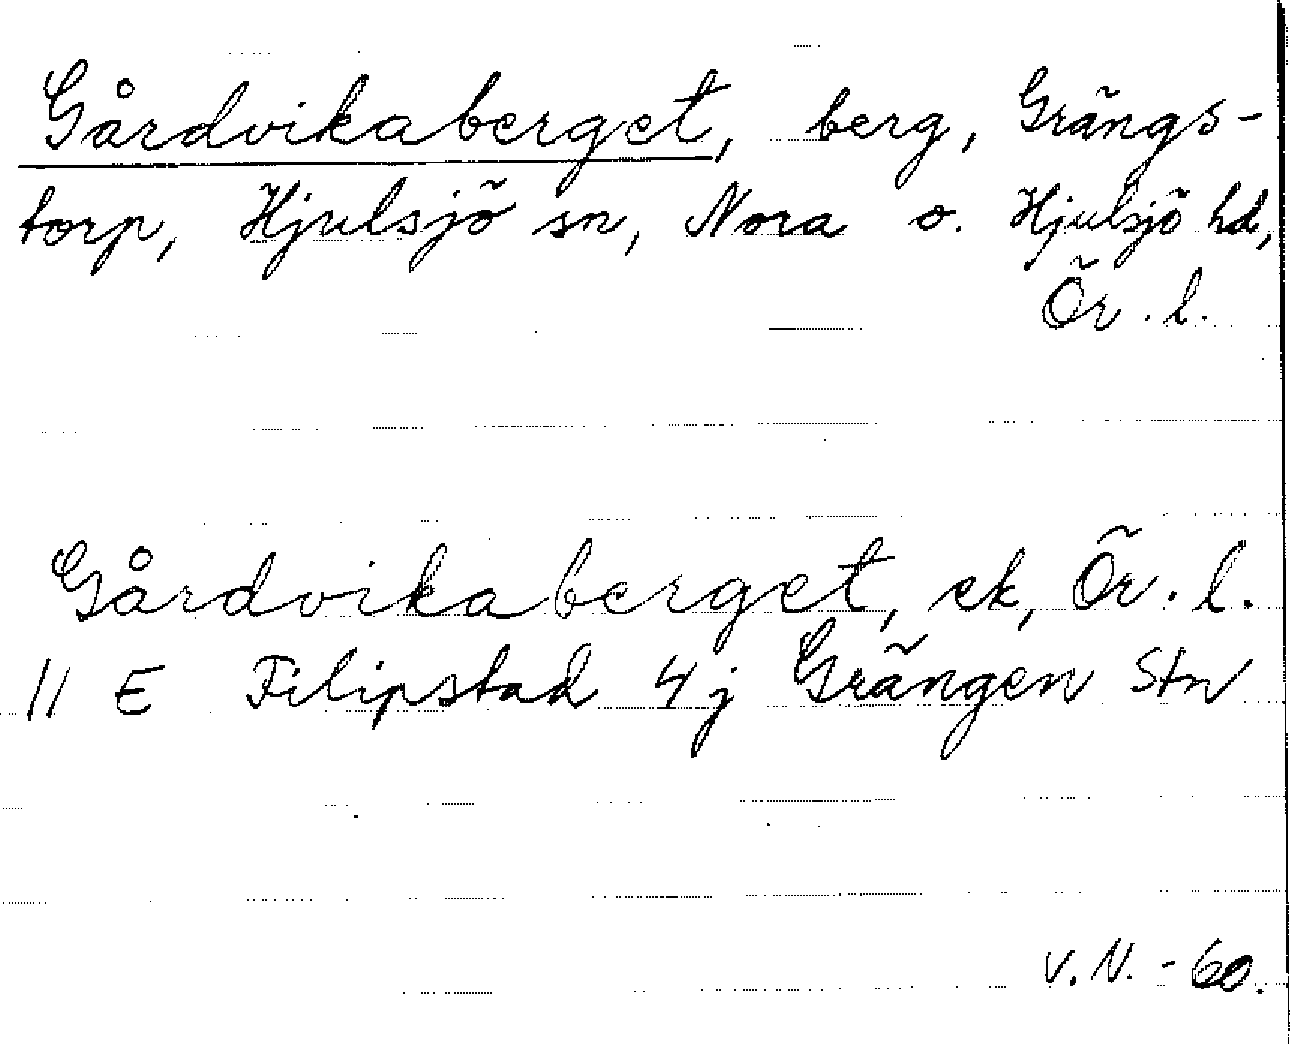 Gårdvikaberget, berg, Grängs-
torp, Hjulsjö sn, Nora o. Hjulsjö hd,
Ör. l.
Gårdvikaberget, ek, Ör. l.
11 E Filipstad 4j Grängen Stn
V. N. - 60.